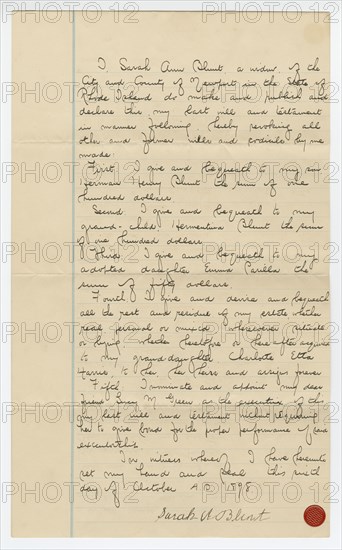 I, Sarah Ann Blunt, a widow of the
City and County of Newport in the State of
Rhode Island do make and publish and
declare this my last will and testament
in manner following hereby revoking all
other and former wills and codicils by me
made.
First I give and bequeath to my son
Herman Henry Blunt the sum of one
hundred dollars
Second I give and bequeath to my
grand-child Hermentina Blunt the sum
of one hundred dollars
Third I give and bequeath to my
adopted daughter Emma the
sum of fifty dollars.
Fourth I give and devise and bequeath
all the rest and residue of my estate whether
real personal or mixed wheresoever situate
or lying whether heretofore or hereafter acquired
to my granddaughter Charlotte Etta
Harris, to her, her heirs and assigns forever
Fifth I nominate and appoint my dear
friend Lucy M Green as the executrix of this
my last will and testament without requiring
her to give bond for the proper performance of said
executorship.
In witness whereof I have hereunto
set my hand and seal this sixth
day of October A.D. 1898
Sarah A Blunt